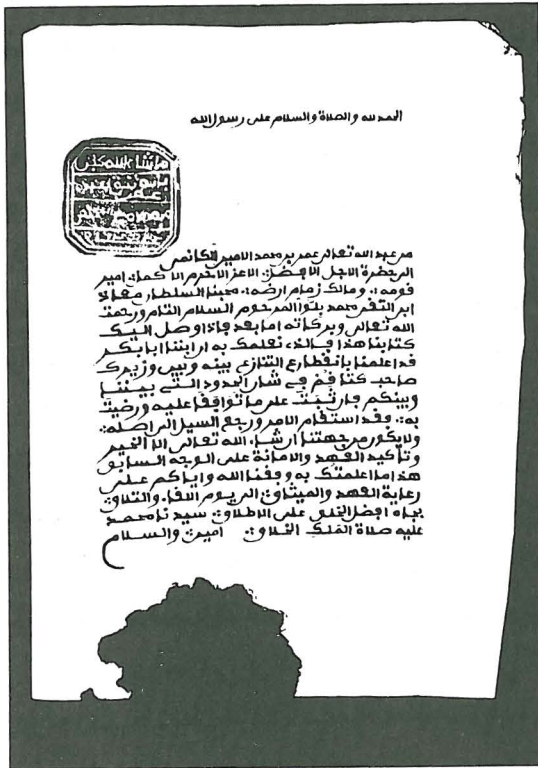 الحمد لله والصلاة والسلام على رسول الله
ما شاء الله
من عبد الله تعالى عمر بن محمد الامين الكانمي
الى حضرة الاجل الافضل الاعز الاكرم الاكمل امير
قومه ومالك زمام ارضه محبنا السلطان معاذ
ابن التقى محمد بلو المرحوم السلام التام ورحمت
الله تعالى وبركاته اما بعد فاذا وصل اليك
كتابنا هذا فالذى نعلمك به ان ابننا ابا بكر
قد اعلمنا بانقطاع التنازع بينه وبين وزيرك
صاحب كتاغم في شان الحدود التى بيننا
وبينكم فان ثبت على ما توافقا عليه ورضيت
به فقد استقام الامر ورجع السيل الى اصله
ولا يكون من جهتنا ان شاء الله تعالى الا الخير
وتاكيد العهد والامانة على الوجه السابق
هذا ما اعلمتك به وفقنا الله واياكم على
رعاية العهد والميثاق الى يوم اللقاء والتلاق
بجاه افضل الخلق على الاطلاق سيدنا محمد
عليه صلاة الملك الخلاق امين والسلام